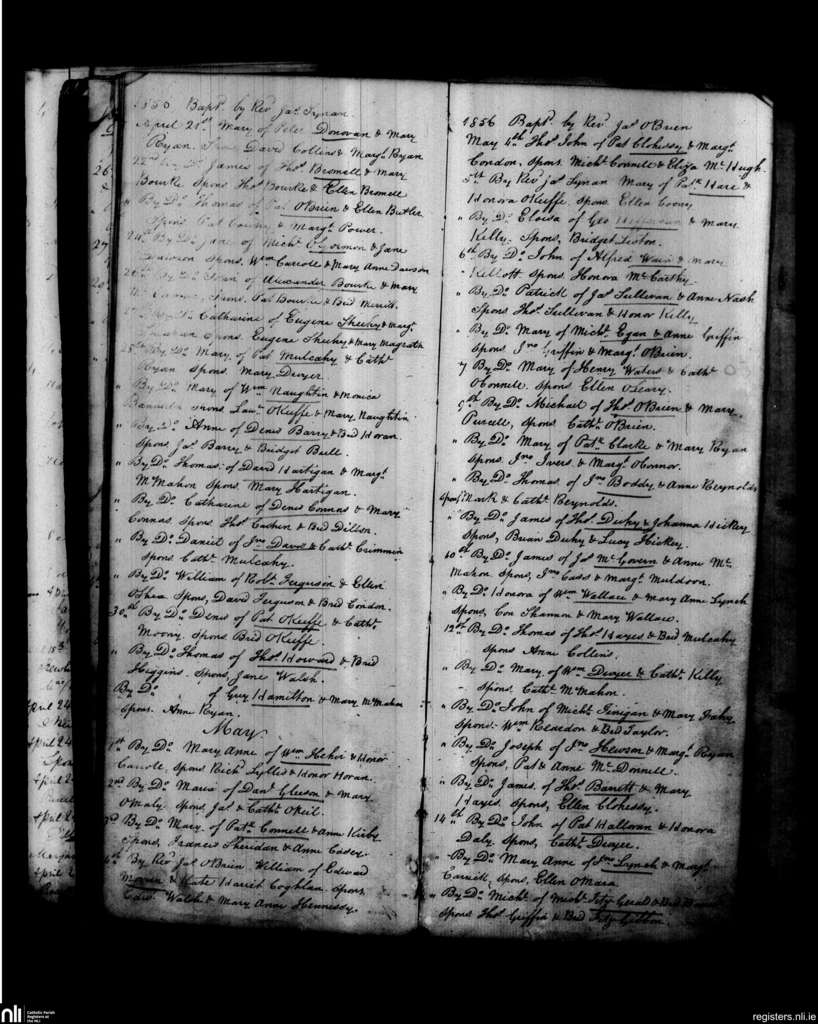 Bapt. by Rev Jas Tynan
April 21st Mary of Peter Donovan & Mary
Ryan. David Collins & Margt Ryan
James of Thos Bromell & Mary
Bourke Spons Thos Bourke & Ellen Bromell
" By Do Thomas of Pat OBrien & Ellen Butler
Spons Pat & Margt Power.
24th By Do Jane of Michl OGorman & Jane
Dawson Spons. Wm Carroll & Mary Anne Dawson
26th By Do of Alexander Bourke & Mary
Pat Bourke & Brid
Catharine of Eugene Sheehy & Margt
Spons Eugene Sheehy & Mary Magrath
By Do Mary of Pat Mulcahy & Cathe
Ryan Spons Mary Dwyer.
" By Do Mary of Wm Naughtin & Monica
Spons OKeeffe & Mary Naughtin
" By Do Anne of Denis Barry & Brid Horan.
Spons Jas Barry & Bridget Bull.
" By Do Thomas of David Hartigan & Margt
McMahon Spons Mary Hartigan.
" By Do Catharine of Denis Connas & Mary
Connas Spons Thos & Brid Dillon.
" By Do Daniel of Jno Davis & Cathe Crimmin
Spons Cathe Mulcahy.
" By Do William of Robt Ferguson & Ellen
OShea Spons, David Ferguson & Brid Condon.
30th By Do Denis of Pat OKeeffe & Cathe
Moony Spons Brid OKeeffe
" By Do Thomas of Thos Howard & Brid
Higgins Spons, Jane Walsh.
By Do of Guy Hamilton & Mary McMahon
Spons. Anne Ryan.
May
1st By Do Mary Anne of Wm Hehir & Honor
Carroll Spons Richd Lyllis & Honor Horan.
2nd By Do Maria of Danl Gleeson & Mary
OMaly Spons, Jas & Cathe ONeil.
3rd By Do Mary of Patk Connell & Anne Kirby
Spons, Francis Sheridan & Anne Casey.
4th By Revd Jas OBrien William of Edward
& Kate Harrit Coghlan. Spons
Edwd Walsh & Mary Anne Hennessy.
1856 Bapt. by Rev Jas OBrien
May 4th Thos John of Pat Clohessy & Margt
Condon, Spons Michl Connell & Eliza McHugh.
5th By Rev Jas Tynan Mary of Patk Hare &
Honora OKeeffe Spons Ellen
" By Do Eloisa of Geo & Mary
Kelly. Spons, Bridget
6th By Do John of Alfred & Mary
Kellott Spons Honora McCarthy.
" By Do Patrick of Jas Sullivan & Anne Nash
Spons Thos Sullivan & Honor Kelly
" By Do Mary of Michl Egan & Anne Griffin
Spons Jno Griffin & Margt OBrien.
7 By Do Mary of Henry Waters & Cathe
OConnell. Spons Ellen OLeary.
9th By Do Michael of Thos OBrien & Mary
Purcell, Spons Cathe OBrien.
" By Do Mary of Patk Clarke & Mary Ryan
Spons Jno Ivers & Margt OConnor.
" By Do Thomas of Jno Boddy & Anne Reynolds
Spons Mark & Cathe Reynolds.
" By Do James of Thos Duhy & Johanna Hickey
Spons, Brian Duhy & Lucy Hickey.
10th By Do James of Jas McGovern & Anne Mc
Mahon Spons, Jno Cass & Margt Muldoon.
" By Do Honora of Wm Wallace & Mary Anne Lynch
Spons, Con Shannon & Mary Wallace.
12th By Do Thomas of Thos Hayes & Brid Mulcahy
Spons Anne Collins.
" By Do Mary of Wm Dwyer & Cathe Kelly
Spons. Cathe McMahon.
" By Do John of Michl Finigan & Mary Fahy
Spons. Wm Reardon & Brid Taylor.
" By Do Joseph of Jno Hewson & Margt Ryan
Spons, Pat & Anne McDonnell.
" By Do James of Thos Barrett & Mary
Hayes. Spons, Ellen Clohessy.
14th By Do John of Pat Halloran & Honora
Daly Spons, Cathe Dwyer.
" By Do Mary Anne of Jno Lynch & Margt
Carrick, Spons. Ellen OMara
" By Do Michl of Michl Fitz Gerald & Brid
Spons Thos Griffin & Brid Fitz Gibbon.
nli
Catholic Parish
Registers at
the NLI
registers.nli.ie